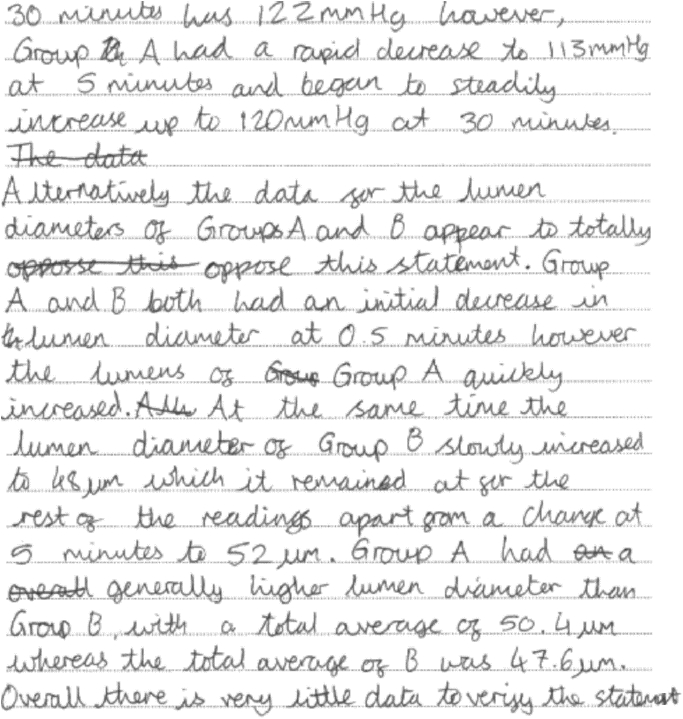 30 minutes has 122mmHg however,
Group A had a rapid decrease to 113mmHg
at 5 minutes and began to steadily
increase up to 120mmHg at 30 minutes.
The data
Alternatively the data for the lumen
diameters of Groups A and B appear to totally
opposse this oppose this statement. Group
A and B both had an initial decrease in
lumen diameter at 0.5 minutes however
the lumens of Group Group A quickly
increased. At the same time the
lumen diameter of Group B slowly increased
to 48µm which it remained at for the
rest of the readings apart from a change at
5 minutes to 52µm. Group A had an a
overall generally higher lumen diameter than
Group B, with a total average of 50.4µm
whereas the total average of B was 47.6µm.
Overall there is very little data to verify the statement